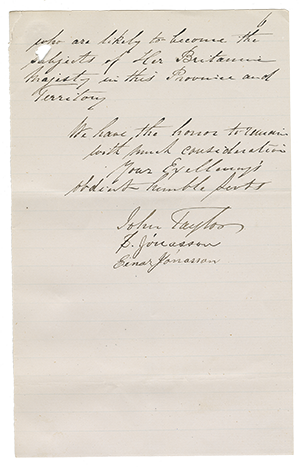 6
who are likely to become the
subjects of Her Britannic
Majesty in this Province and
Territory
We have the honor to remain
with much consideration
Your Excellency's
obedient humble servts
John Taylor
S. Jónasson
Einar Jónasson